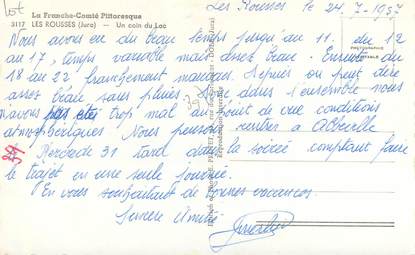 Lot
La Franche-Comté Pittoresque
3117 LES ROUSSES (Jura) — Un coin du Lac
Les Rousses le 24-7-1957
Nous avons eu du beau temps jusqu'au 11. du 12
au 17, temps variable mais assez beau. Ensuite du
18 au 22 franchement mauvais. Depuis on peut dire
assez beau sans pluies. Donc dans l'ensemble nous
n'avons pas été trop mal au point de vue conditions
atmosphériques. Nous pensons rentrer à Abbeville
le Mercredi 31 tard dans la soirée comptant faire
le trajet en une seule journée.
En vous souhaitant de bonnes vacances.
Sincère Amitié
39
PHOTOGRAPHIE
VÉRITABLE